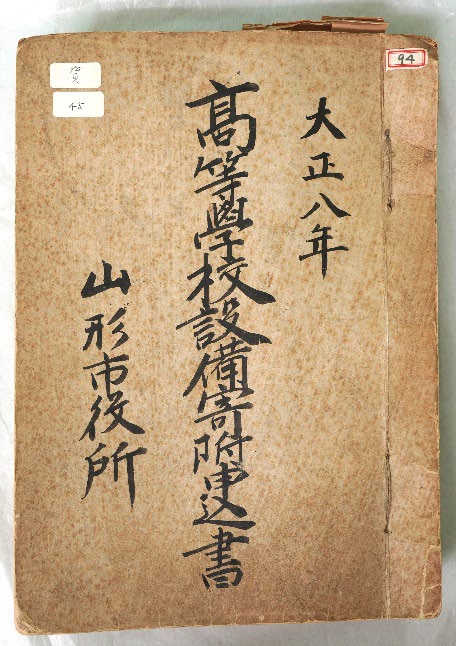 94
大正八年
高等學校設備寄附申込書
山形市役所
45